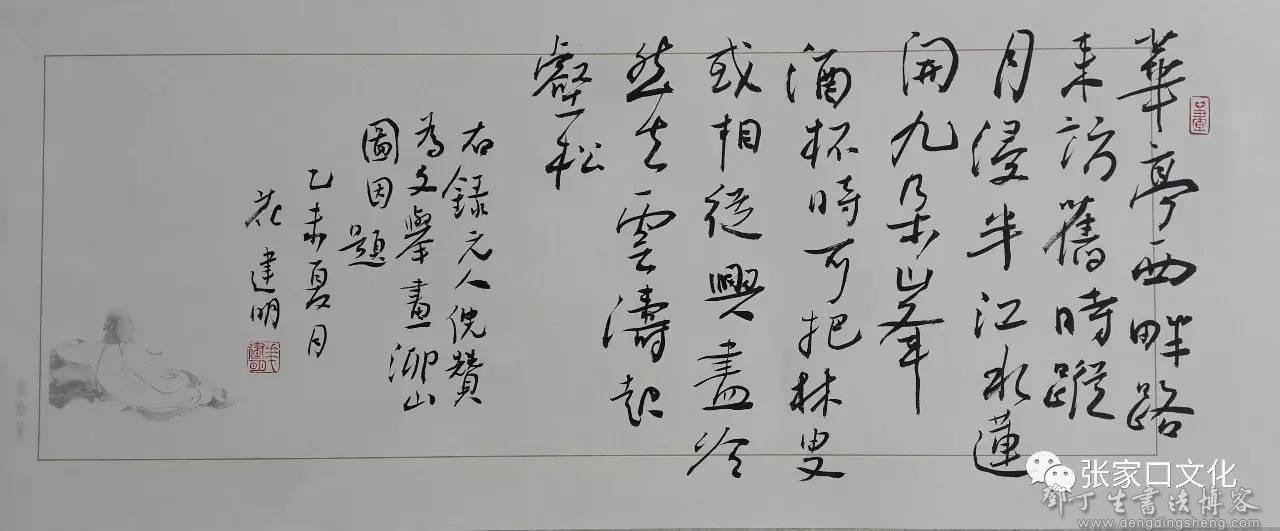 華亭西畔路
来訪舊時蹤
月浸半江水蓮
開九朵峯
酒杯時可把林叟
或相從興盡泠
然去雲濤起
壑松
右録元人倪贊
為文舉畫泖山
圖因題
乙未夏月
花建明
张家口文化
鄧丁生書法博客
www.dengdingsheng.com